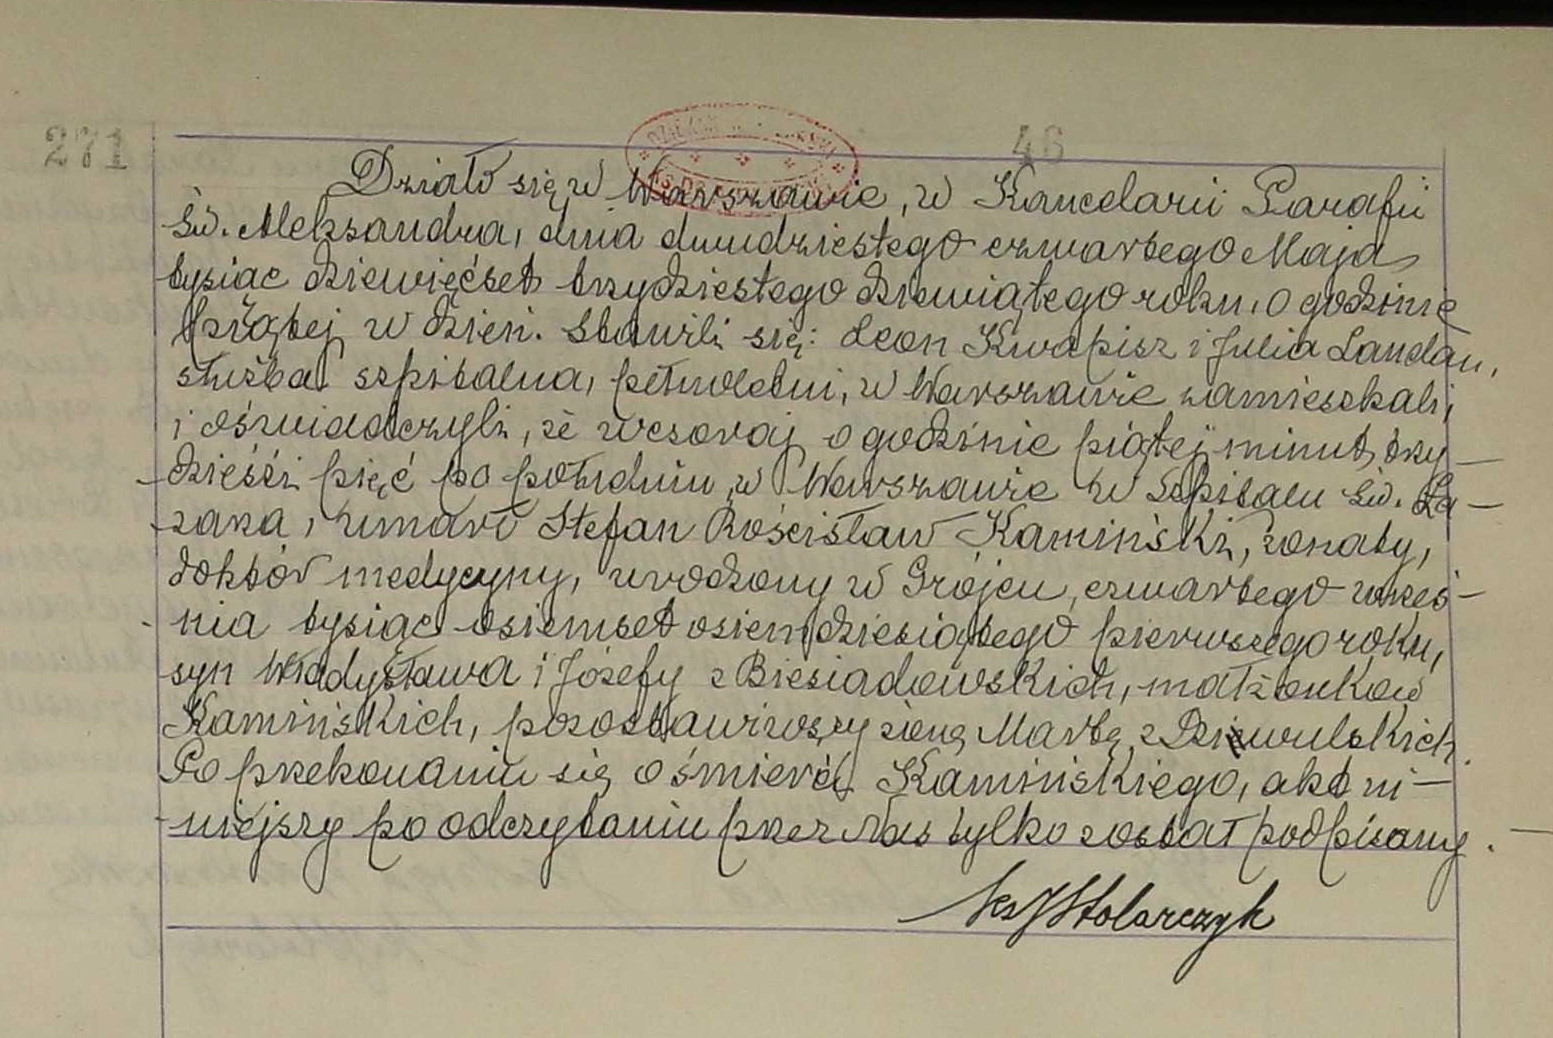 271
46
Działo się w Warszawie, w Kancelarii Parafii
Św. Aleksandra, dnia dwudziestego czwartego Maja
tysiąc dziewięćset trzydziestego dziewiątego roku, o godzinie
piątej w dzień. Stawili się: Leon Kwapisz i Julia Landau,
służba szpitalna, pełnoletni, w Warszawie zamieszkali,
i oświadczyli, że wczoraj o godzinie piątej minut trzy-
dzieści pięć po południu, w Warszawie w Szpitalu Św. Ła-
zarza, umarł Stefan Rościsław Kamiński, żonaty,
doktór medycyny, urodzony w Grójcu, czwartego wrześ-
nia tysiąc osiemset osiemdziesiątego pierwszego roku,
syn Władysława i Józefy z Biesiadowskich, małżonków
Kamińskich, pozostawiwszy żonę Martę z Dziewulskich.
Po przekonaniu się o śmierci Kamińskiego, akt ni-
niejszy po odczytaniu przez Nas tylko został podpisany.
Ks J Stolarczyk